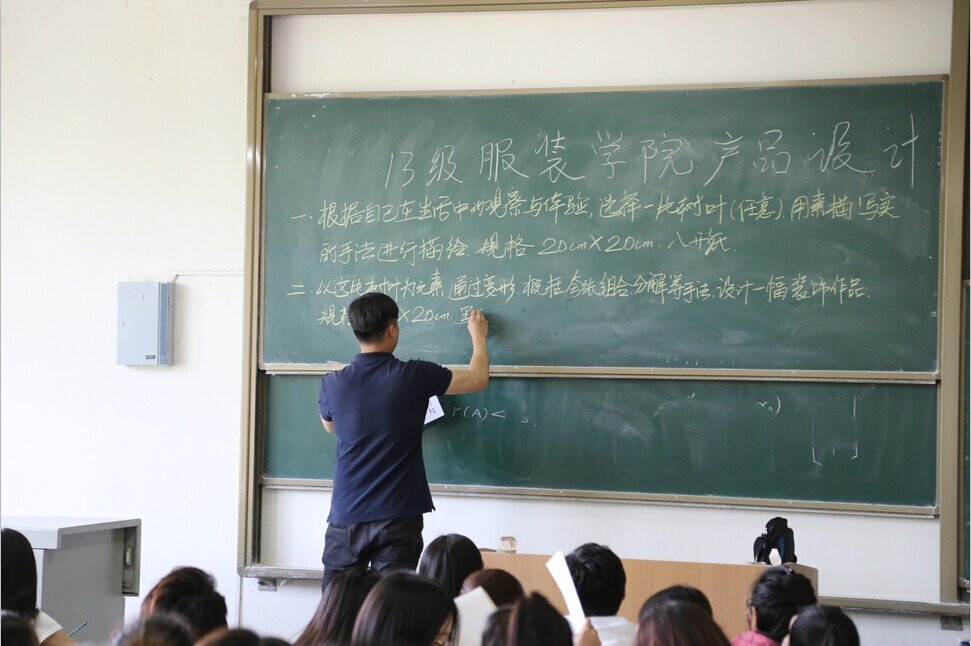 13级服装学院产品设计
一、根据自己在生活中的观察与体验，选择一片树叶(任意)，用素描写实
的手法进行描绘。规格20cm×20cm. 八开纸.
二、以这片树叶为元素，通过变形、概括、夸张、组合、分解等手法，设计一幅装饰作品.
规 ×20cm.
r(A)<